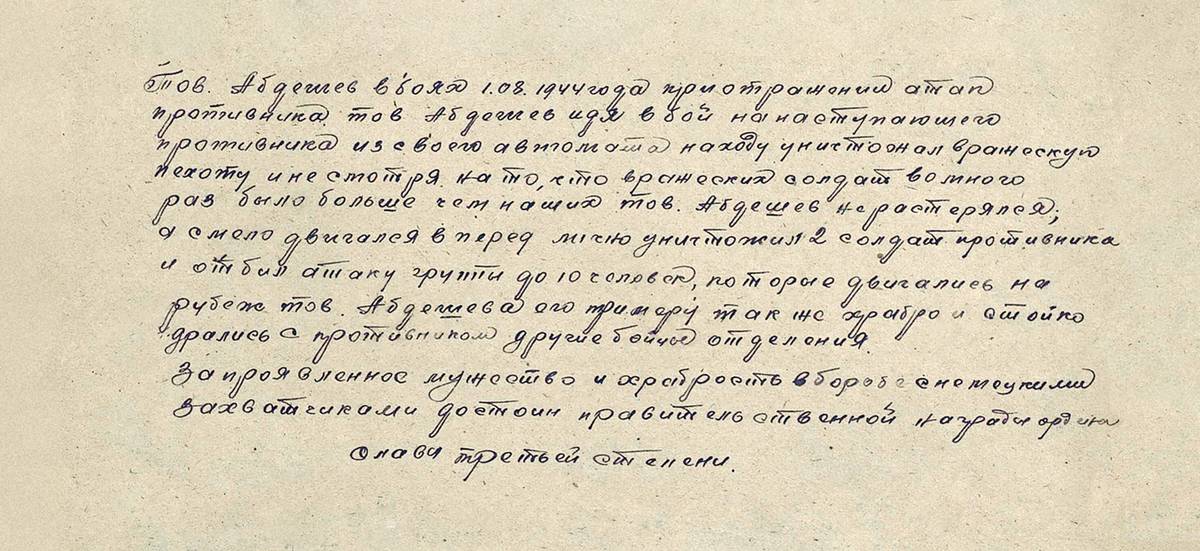 Тов. Абдешев в боях 1.08.1944 года при отражении атак
противника тов Абдешев идя в бой на наступающего
противника из своего автомата находу уничтожал вражескую
пехоту и не смотря на то, что вражеских солдат во много
раз было больше чем наших тов. Абдешев не растерялся;
а смело двигался в перед лично уничтожил 2 солдат противника
и отбил атаку группы до 10 человек, которые двигались на
рубеж тов. Абдешева его примеру так же храбро и стойко
дрались с противником другие бойцы отделения.
За проявленное мужество и храбрость в борьбе с немецкими
захватчиками достоин правительственной награды ордена
Слава третьей степени.